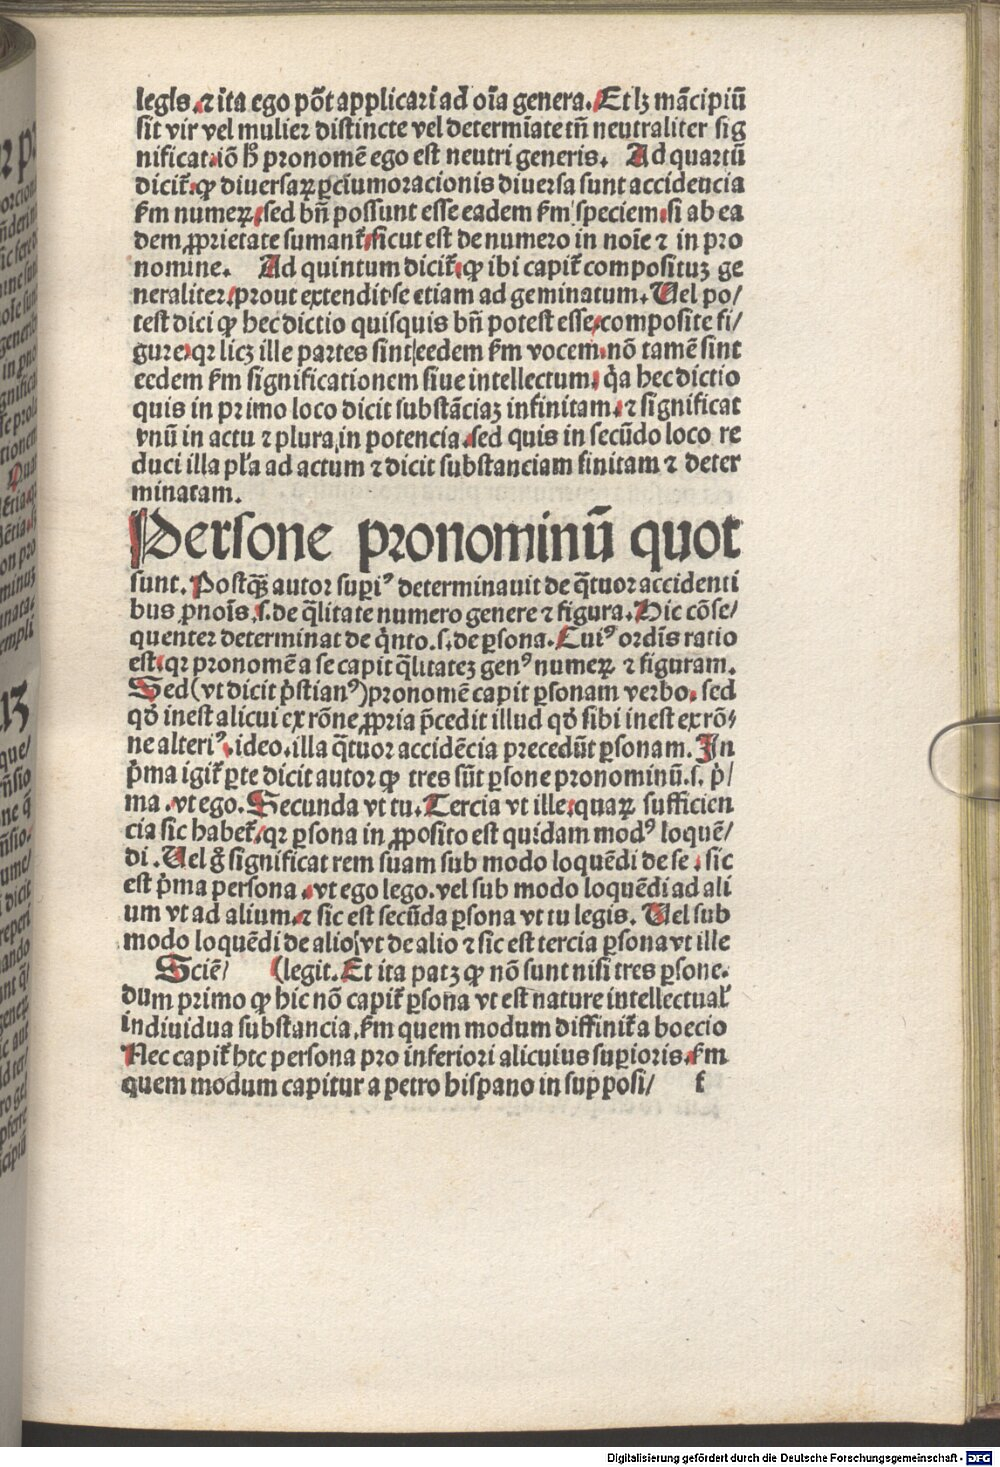 legis.⁊ ita ego põt applicari ad oĩa genera. Et lꝫ mãcipiũ
sit vir vel mulier distincte vel determĩate tñ neutraliter sig
nificat.iõ h̊ pronomẽ ego est neutri generis. Ad quartũ
dicit᷑.ꝙ diversaꝝ ꝑciumoracionis diversa sunt accidencia
ẜm numeꝝ.sed bñ possunt esse eadem ẜm speciem.si ab ea
dem ꝓprietate sumant᷑.sicut est de numero in noĩe ⁊ in pro
nomine. Ad quintum dicit᷑.ꝙ ibi capit᷑ composituꝫ ge
neraliter.prout extendit se etiam ad geminatum. Uel po/
test dici ꝙ hec dictio quisquis bñ potest esse.composite fi/
gure.qꝛ licꝫ ille partes sint eedem ẜm vocem.nõ tamẽ sint
eedem ẜm significationem siue intellectum. q̇a hec dictio
quis in primo loco dicit substãciaꝫ infinitam.⁊ significat
vnũ in actu ⁊ plura in potencia.sed quis in secũdo loco re
duci illa pl̃a ad actum ⁊ dicit substanciam finitam ⁊ deter
minatam.
Persone pronominũ quot
sunt. Postq̃ꝫ autor supiꝰ determinauit de q̃tuor accidenti
bus ꝓnoĩs.s.de q̃litate numero genere ⁊ figura. Hic cõse/
quenter determinat de q̇nto.s.de ꝑsona. Cuiꝰ ordĩs ratio
est.qꝛ pronomẽ a se capit q̃litateꝫ genꝰ numeꝝ ⁊ figuram.
Sed (vt dicit p̓stianꝰ) pronomẽ capit ꝑsonam verbo. sed
qd̓ inest alicui ex rõne ꝓpria p̃cedit illud qd̓ sibi inest ex rõ/
ne alteriꝰ.ideo.illa q̃tuor accidẽcia precedũt ꝑsonam. In
p̓ma igit᷑ ꝑte dicit autor ꝙ tres sũt ꝑsone pronominũ.s. p̓/
ma .vt ego. Secunda vt tu. Tercia vt ille.quaꝝ sufficien
cia sic habet᷑.qꝛ ꝑsona in ꝓposito est quidam modꝰ loquẽ/
di . Uel g̊ significat rem suam sub modo loquẽdi de se . sic
est p̓ma persona .vt ego lego. vel sub modo loquẽdi ad ali
um vt ad alium.⁊ sic est secũda ꝑsona vt tu legis. Uel sub
modo loquẽdi de alio vt de alio ⁊ sic est tercia ꝑsona vt ille
Sciẽ/ (legit. Et ita patꝫ ꝙ nõ sunt nisi tres ꝑsone.
dum primo ꝙ hic nõ capit᷑ ꝑsona vt est nature intellectual᷑
indiuidua substancia.ẜm quem modum diffinit᷑ a boecio
Nec capit᷑ htc persona pro inferiori alicuius suꝑioris.ẜm
quem modum capitur a petro hispano in supposi/ f
Digitalisierung gefördert durch die Deutsche Forschungsgemeinschaft - DFG